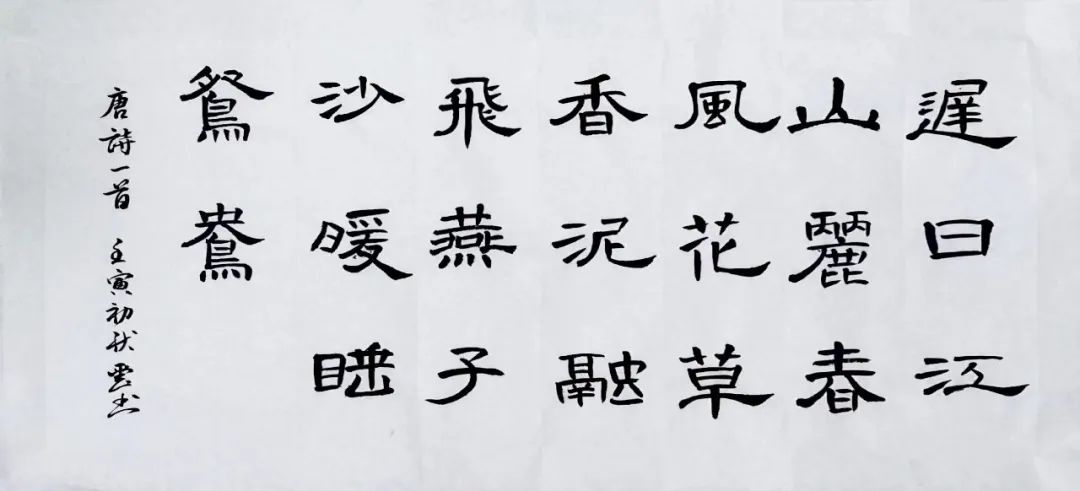 遲日江
山麗春
風花草
香泥融
飛燕子
沙暖睡
鴛鴦
唐詩一首 壬寅初秋雲書